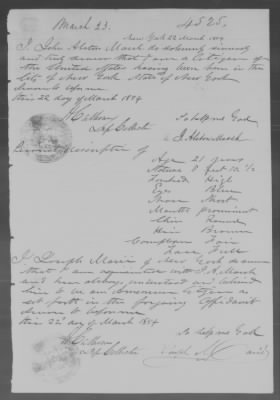 March 23.
4525.
New York 22 March 1854
I John Alston March do solemnly sincerely
and truly declare that I am a citizen of
the United States having been born in the
City of New York State of New York
Sworn to before me
this 22 day of March 1854
So help me God
Dep Collector
J Alston March
Personal description of
Age 21 years
Stature 5 feet 10 1/2
Forehead High
Eyes Blue
Nose Short
Mouth Prominent
Chin Round
Hair Brown
Complexion Fair
Face
I Joseph of New York do swear
that I am acquainted with J A March
and have always understood and believed
him to be an American Citizen as
set forth in the foregoing Affidavit
Sworn to before me
this 22d day of March 1854
So help me God
Dep Collector
Joseph